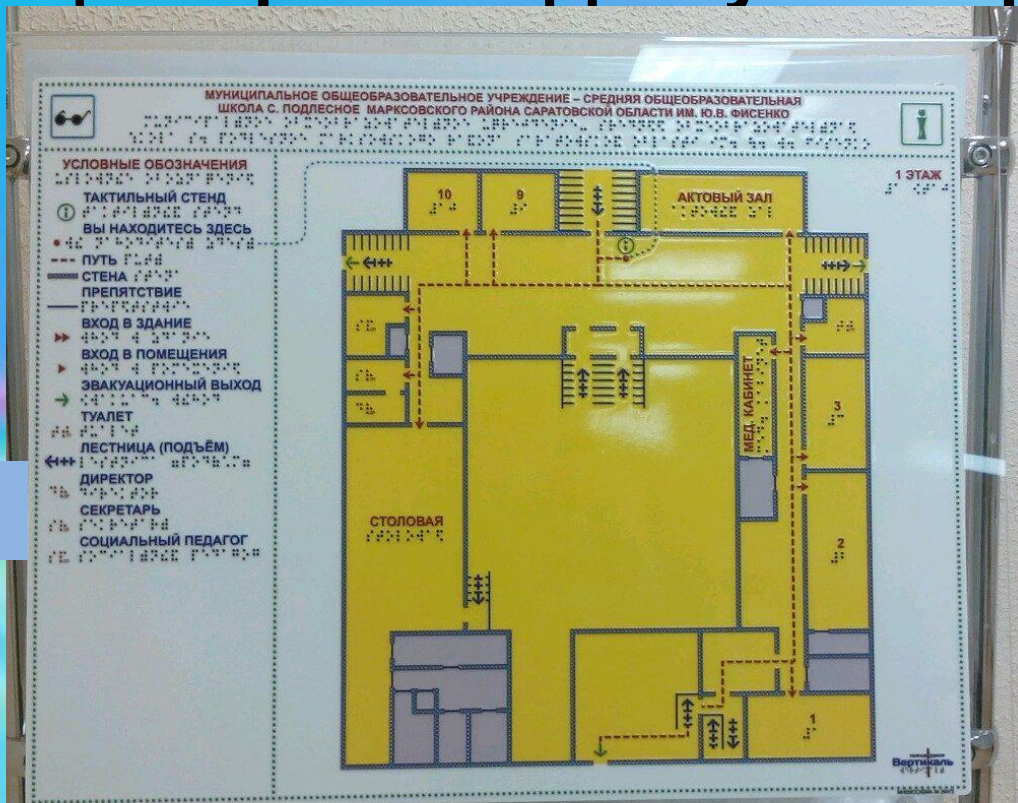 МУНИЦИПАЛЬНОЕ ОБЩЕОБРАЗОВАТЕЛЬНОЕ УЧРЕЖДЕНИЕ – СРЕДНЯЯ ОБЩЕОБРАЗОВАТЕЛЬНАЯ
ШКОЛА С. ПОДЛЕСНОЕ МАРКСОВСКОГО РАЙОНА САРАТОВСКОЙ ОБЛАСТИ ИМ. Ю.В. ФИСЕНКО
УСЛОВНЫЕ ОБОЗНАЧЕНИЯ
ТАКТИЛЬНЫЙ СТЕНД
ВЫ НАХОДИТЕСЬ ЗДЕСЬ
ПУТЬ
СТЕНА
ПРЕПЯТСТВИЕ
ВХОД В ЗДАНИЕ
ВХОД В ПОМЕЩЕНИЯ
ЭВАКУАЦИОННЫЙ ВЫХОД
ТУАЛЕТ
ЛЕСТНИЦА (ПОДЪЁМ)
ДИРЕКТОР
СЕКРЕТАРЬ
СОЦИАЛЬНЫЙ ПЕДАГОГ
1 ЭТАЖ
10
9
АКТОВЫЙ ЗАЛ
МЕД. КАБИНЕТ
3
СТОЛОВАЯ
2
1
Вертикаль